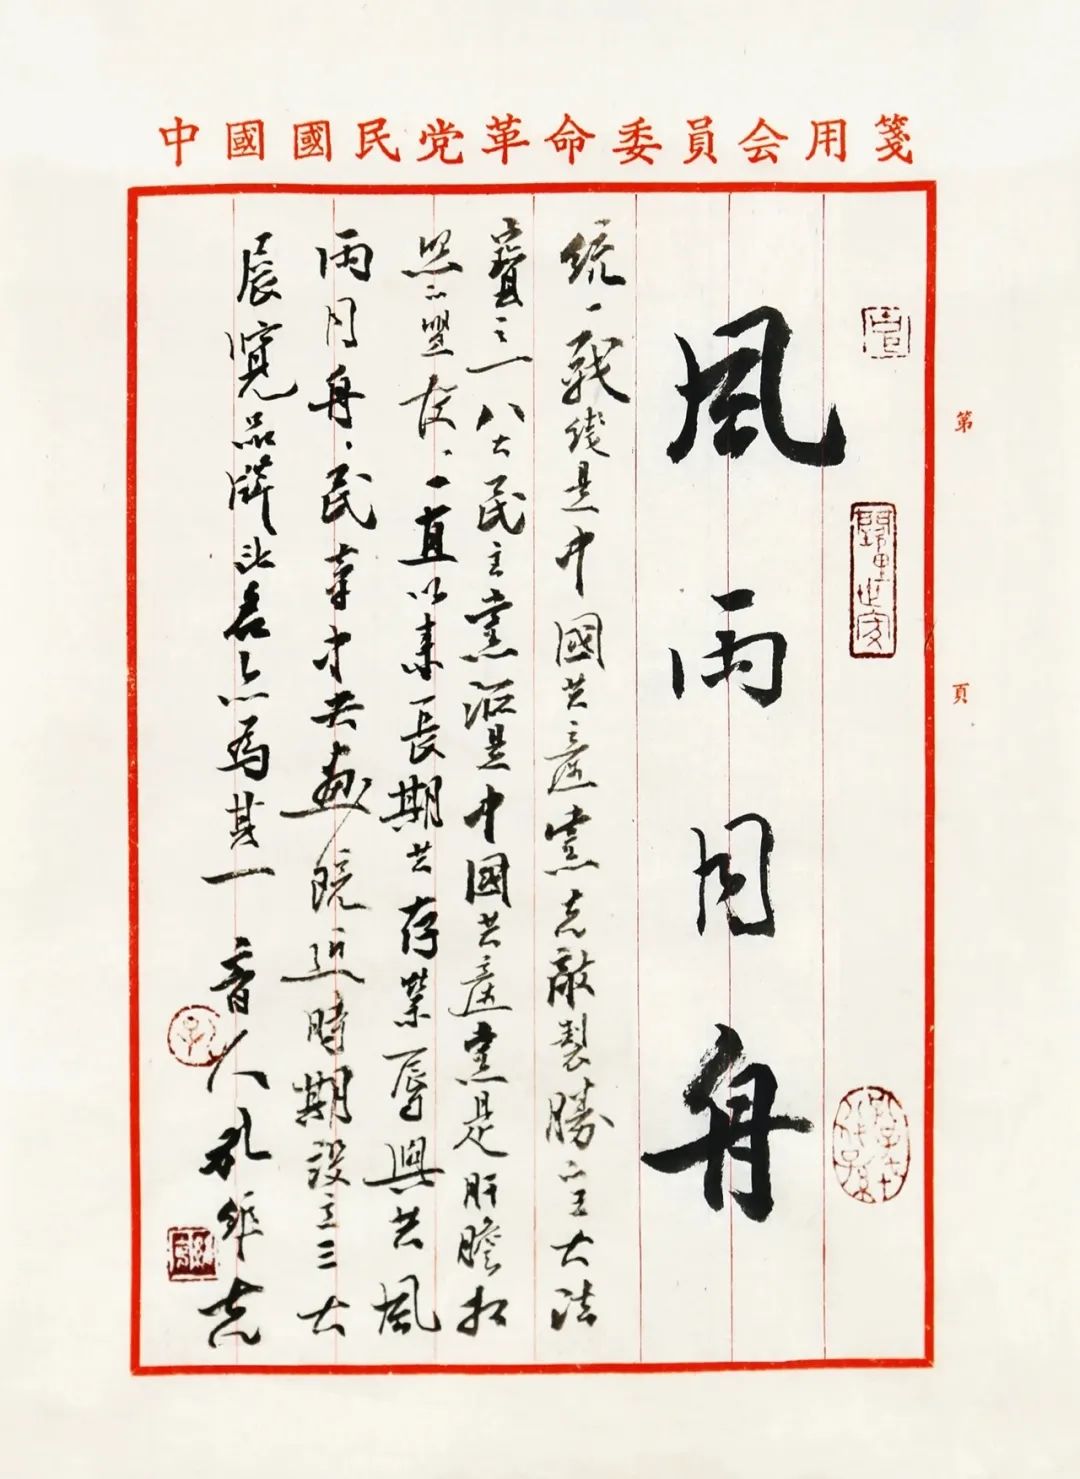 中國國民党革命委員会用箋
第 頁
風雨同舟
統一戰綫是中國共產黨克敵製勝的三大法
寶之一八大民主黨派是中國共產黨是肝膽相
照的盟友、一直以來長期共存榮辱與共風
雨同舟、民革中共畫院近時期設立三大
展寬品牌此卷亦為其一 魯人孔維克